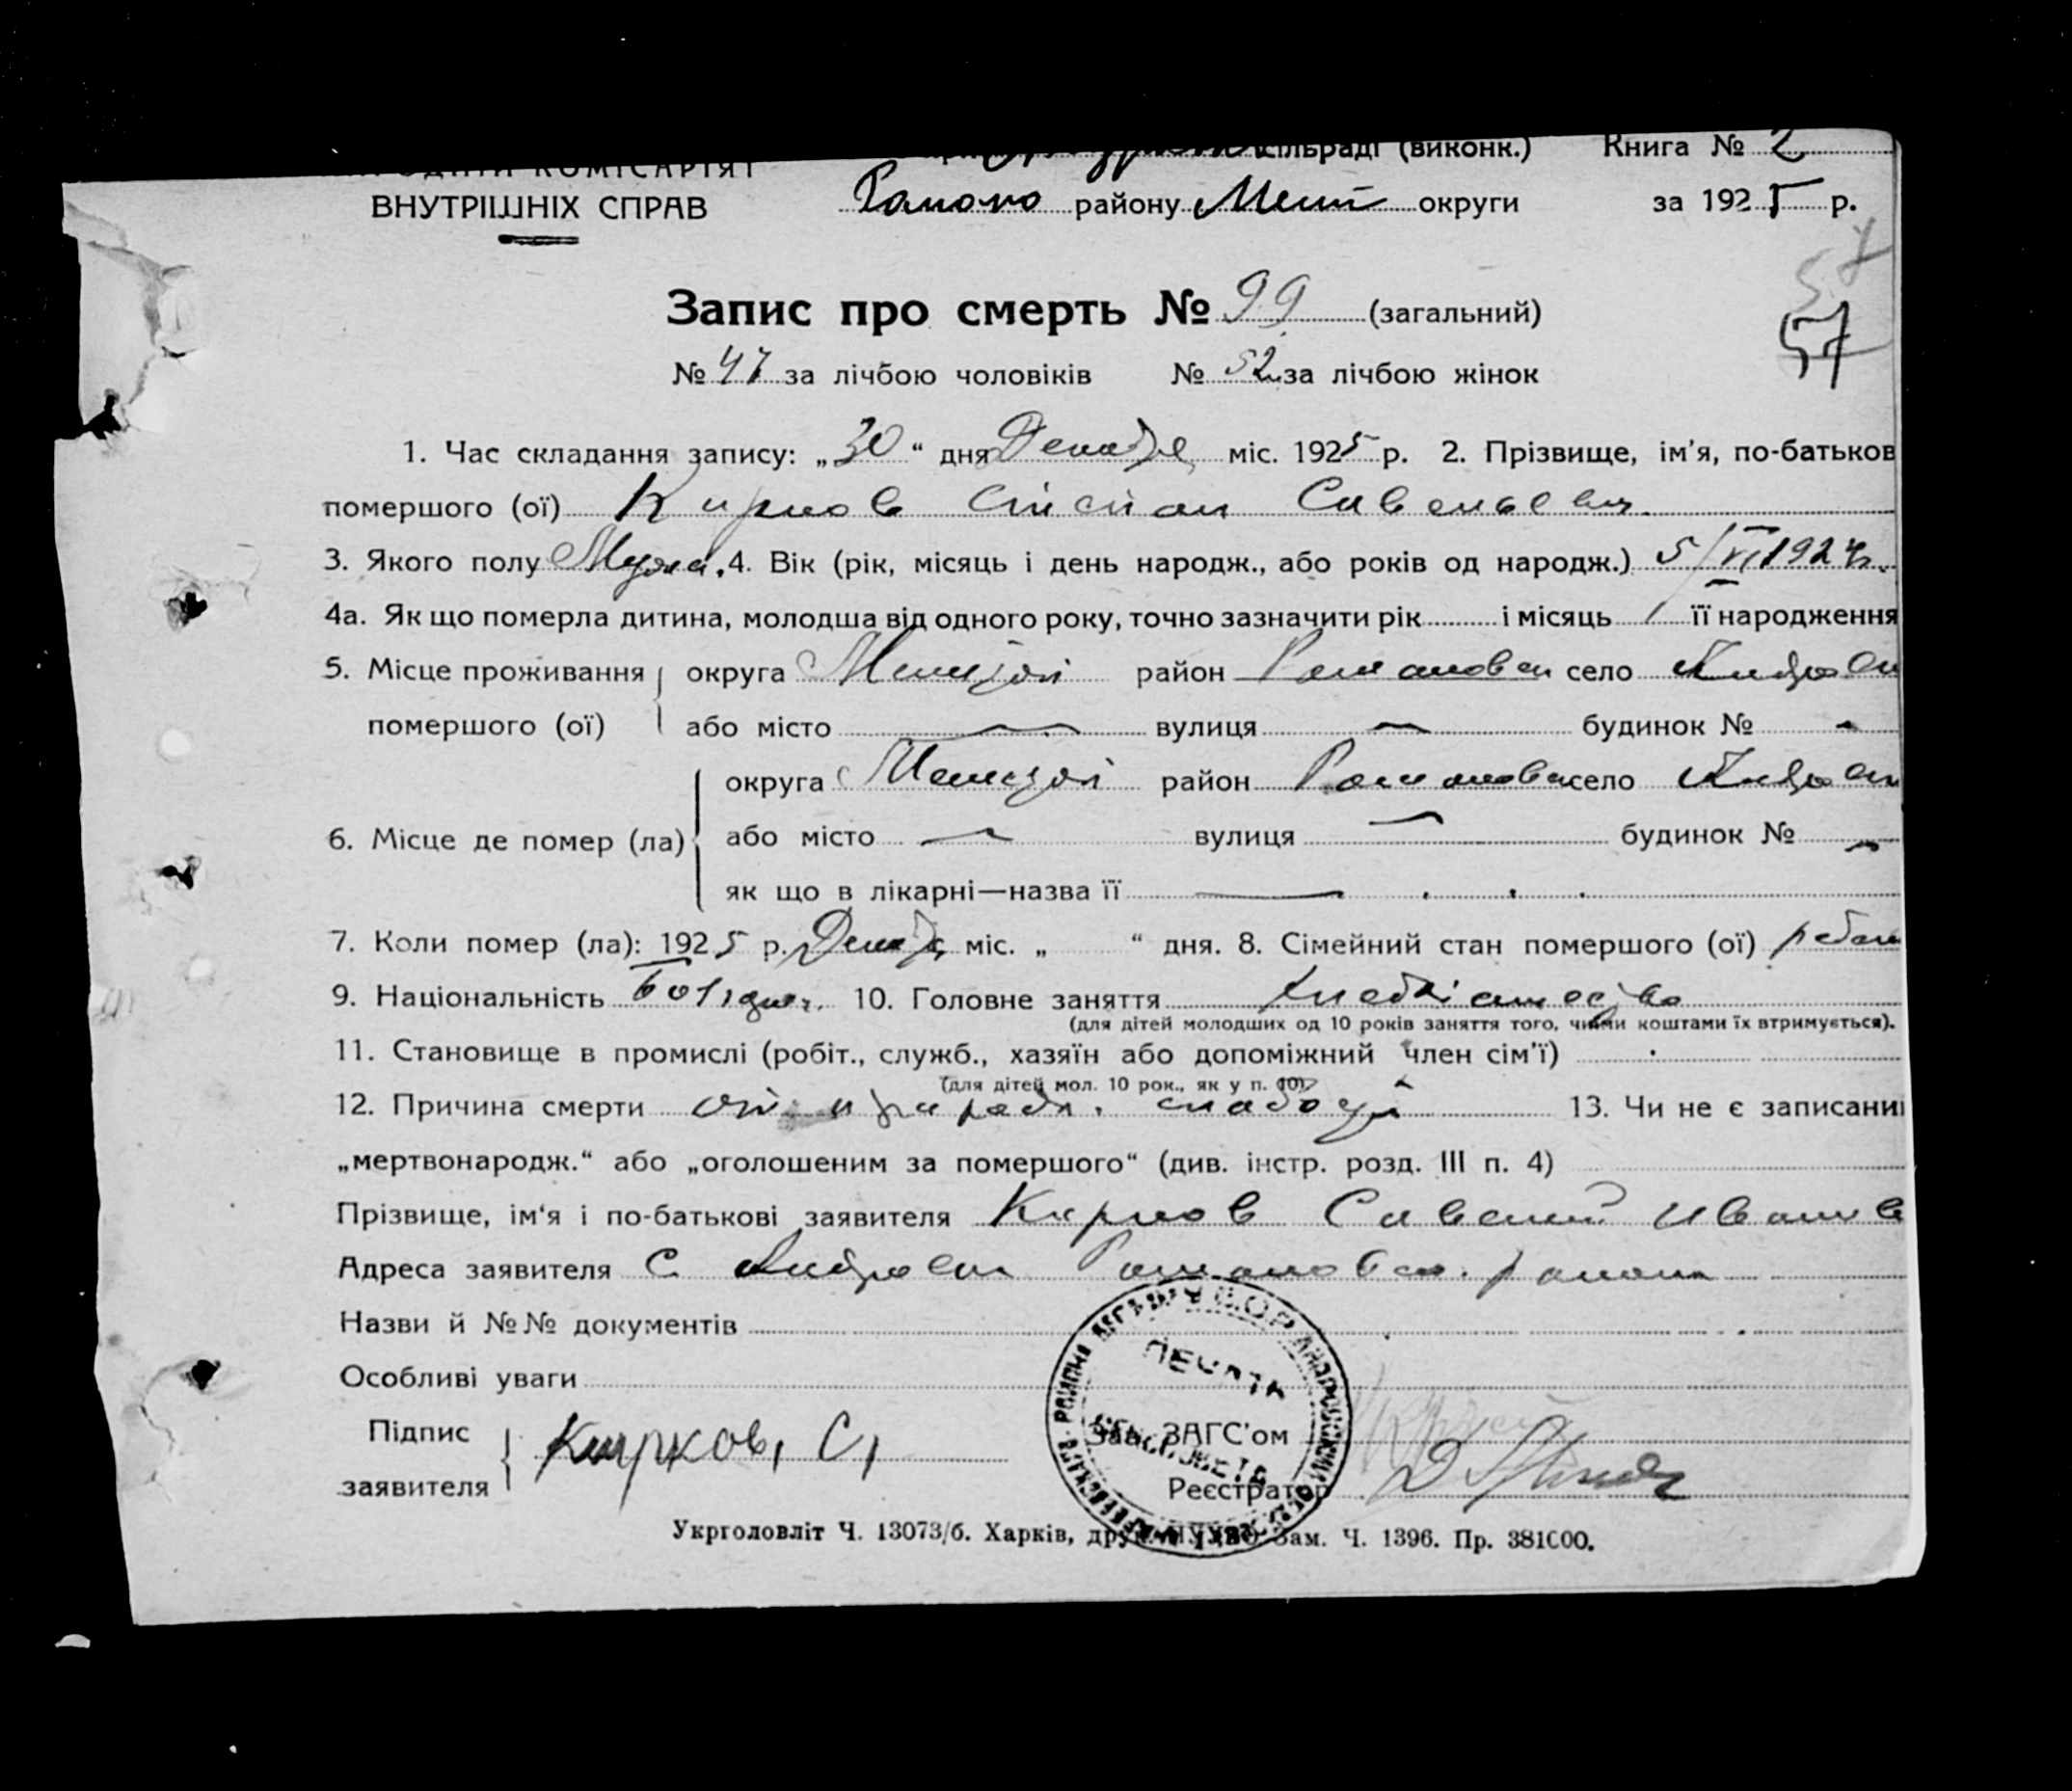 сільраді (виконк.) Книга № 2
ВНУТРІШНІХ СПРАВ Романо району Мелит округи за 1925 р.
57
57
Запис про смерть № 99 (загальний)
№ 47 за лічбою чоловіків № 52 за лічбою жінок
1. Час складання запису: „30“ дня Декабр міс. 1925 р. 2. Прізвище, ім’я, по-батьков
помершого (ої) Кирков Степан Савельевич
3. Якого полу Мужс. 4. Вік (рік, місяць і день народж., або років од народж.) 5/VI 1924.
4а. Як що померла дитина, молодша від одного року, точно зазначити рік і місяць її народження
5. Місце проживання округа район Романовск село Андровк
помершого (ої) або місто — вулиця — будинок № -
округа район Романовск село Андровк
6. Місце де помер (ла) або місто — вулиця — будинок № -
як що в лікарні—назва її —
7. Коли помер (ла): 1925 р. Декабр міс. „ “ дня. 8. Сімейний стан помершого (ої) ребен
9. Національність болгар. 10. Головне заняття хлебопашество
(для дітей молодших од 10 років заняття того, чиїми коштами їх втримується).
11. Становище в промислі (робіт., служб., хазяїн або допоміжний член сім’ї)
(для дітей мол. 10 рок., як у п. 10)
12. Причина смерти от слабост 13. Чи не є записани
„мертвонародж.“ або „оголошеним за помершого“ (див. інстр. розд. III п. 4)
Прізвище, ім‘я і по-батькові заявителя Кирков Савелий Иванов
Адреса заявителя С. Андровк Романовск. района
Назви й №№ документів
Особливі уваги
ПЕЧАТЬ
Підпис Кирков, С, Зав. ЗАГС’ом
заявителя Реєстратор
Укрголовліт Ч. 13073/б. Харків, Зам. Ч. 1396. Пр. 381000.